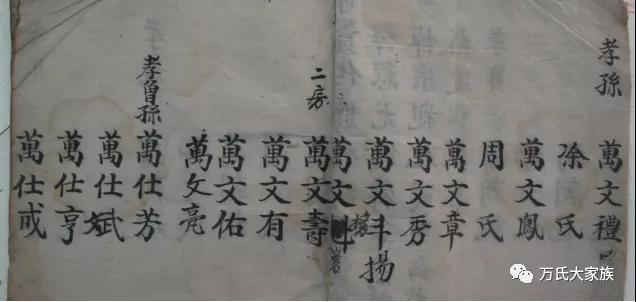 孝孫
萬文禮
凃氏
萬文鳳
周氏
萬文章
萬文秀
萬文丰揚
萬文
二房
萬文壽
萬文有
萬文佑
萬文亮
孝曾孫
萬仕芳
萬仕斌
萬仕亨
萬仕彧
万氏大家族